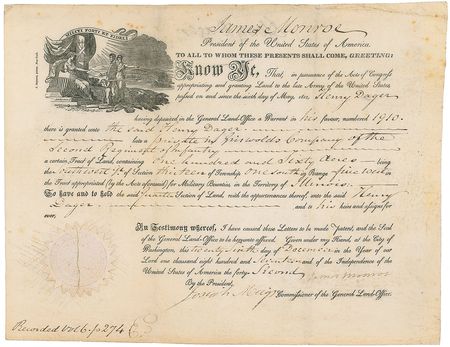 MILITI FORTI ET FIDELI
James Monroe
President of the United States of America.
TO ALL TO WHOM THESE PRESENTS SHALL COME, GREETING:
Know Ye, That, in pursuance of the Acts of Congress
appropriating and granting Land to the late Army of the United States
passed on and since the sixth day of May, 1812, Henry Dager
having deposited in the General Land-Office a Warrant in his favor, numbered 1910.
there is granted unto the said Henry Dager
late a private in Griswolds Company of the
Second Regiment of Infantry
a certain Tract of Land, containing One hundred and Sixty Acres being
the quarter of Section thirteen of Township One south in Range five west in
the Tract appropriated (by the Acts aforesaid) for Military Bounties, in the Territory of Illinois.
To have and to hold the said Quarter Section of Land, with the appurtenances thereof, unto the said Henry
Dager and his heirs and assigns for
ever.
In Testimony whereof, I have caused these Letters to be made Patent, and the Seal
of the General Land-Office to be hereunto affixed. Given under my Hand, at the City of
Washington, this day of December in the Year of our
Lord one thousand eight hundred and Seventeen and of the Independence of the
United States of America the forty Second
By the President, James Monroe
Josiah Meigs Commissioner of the General Land-Office.
Recorded Vol 6. p 274